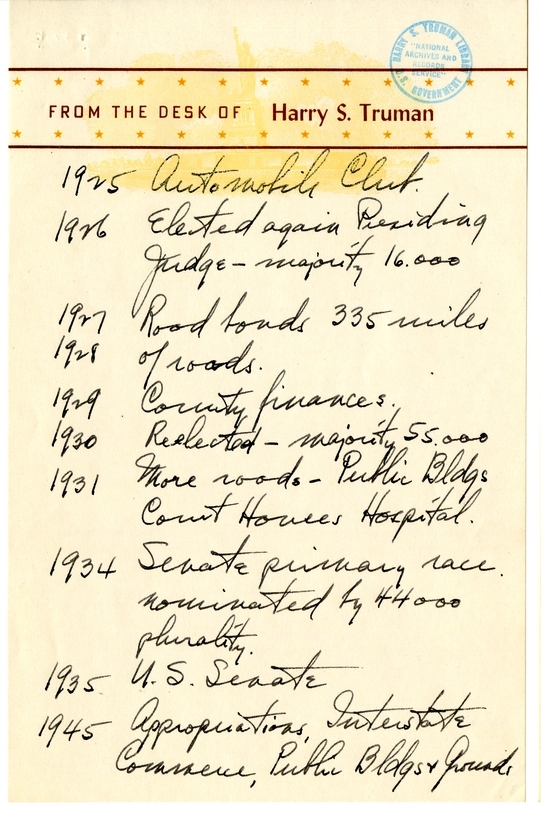 HARRY S. TRUMAN LIBRARY
"NATIONAL
ARCHIVES AND
RECORDS
SERVICE"
U.S. GOVERNMENT
FROM THE DESK OF Harry S. Truman
1925 Automobile Club.
1926 Elected again Presiding
Judge – majority 16.000
1927 Road bonds 335 miles
1928 of roads.
1929 County finances.
1930 Reelected – majority 55.000
1931 More roads – Public Bldgs
Court Houses Hospital.
1934 Senate primary race.
nominated by 44000
plurality.
1935 U.S. Senate
1945 Appropriations, Interstate
Commerce, Public Bldgs & Grounds